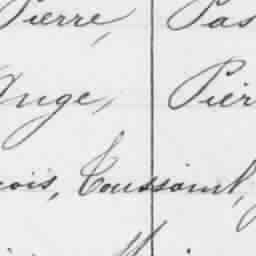 Pierre, Pas
Ange, Pier
çois, Toussaint,